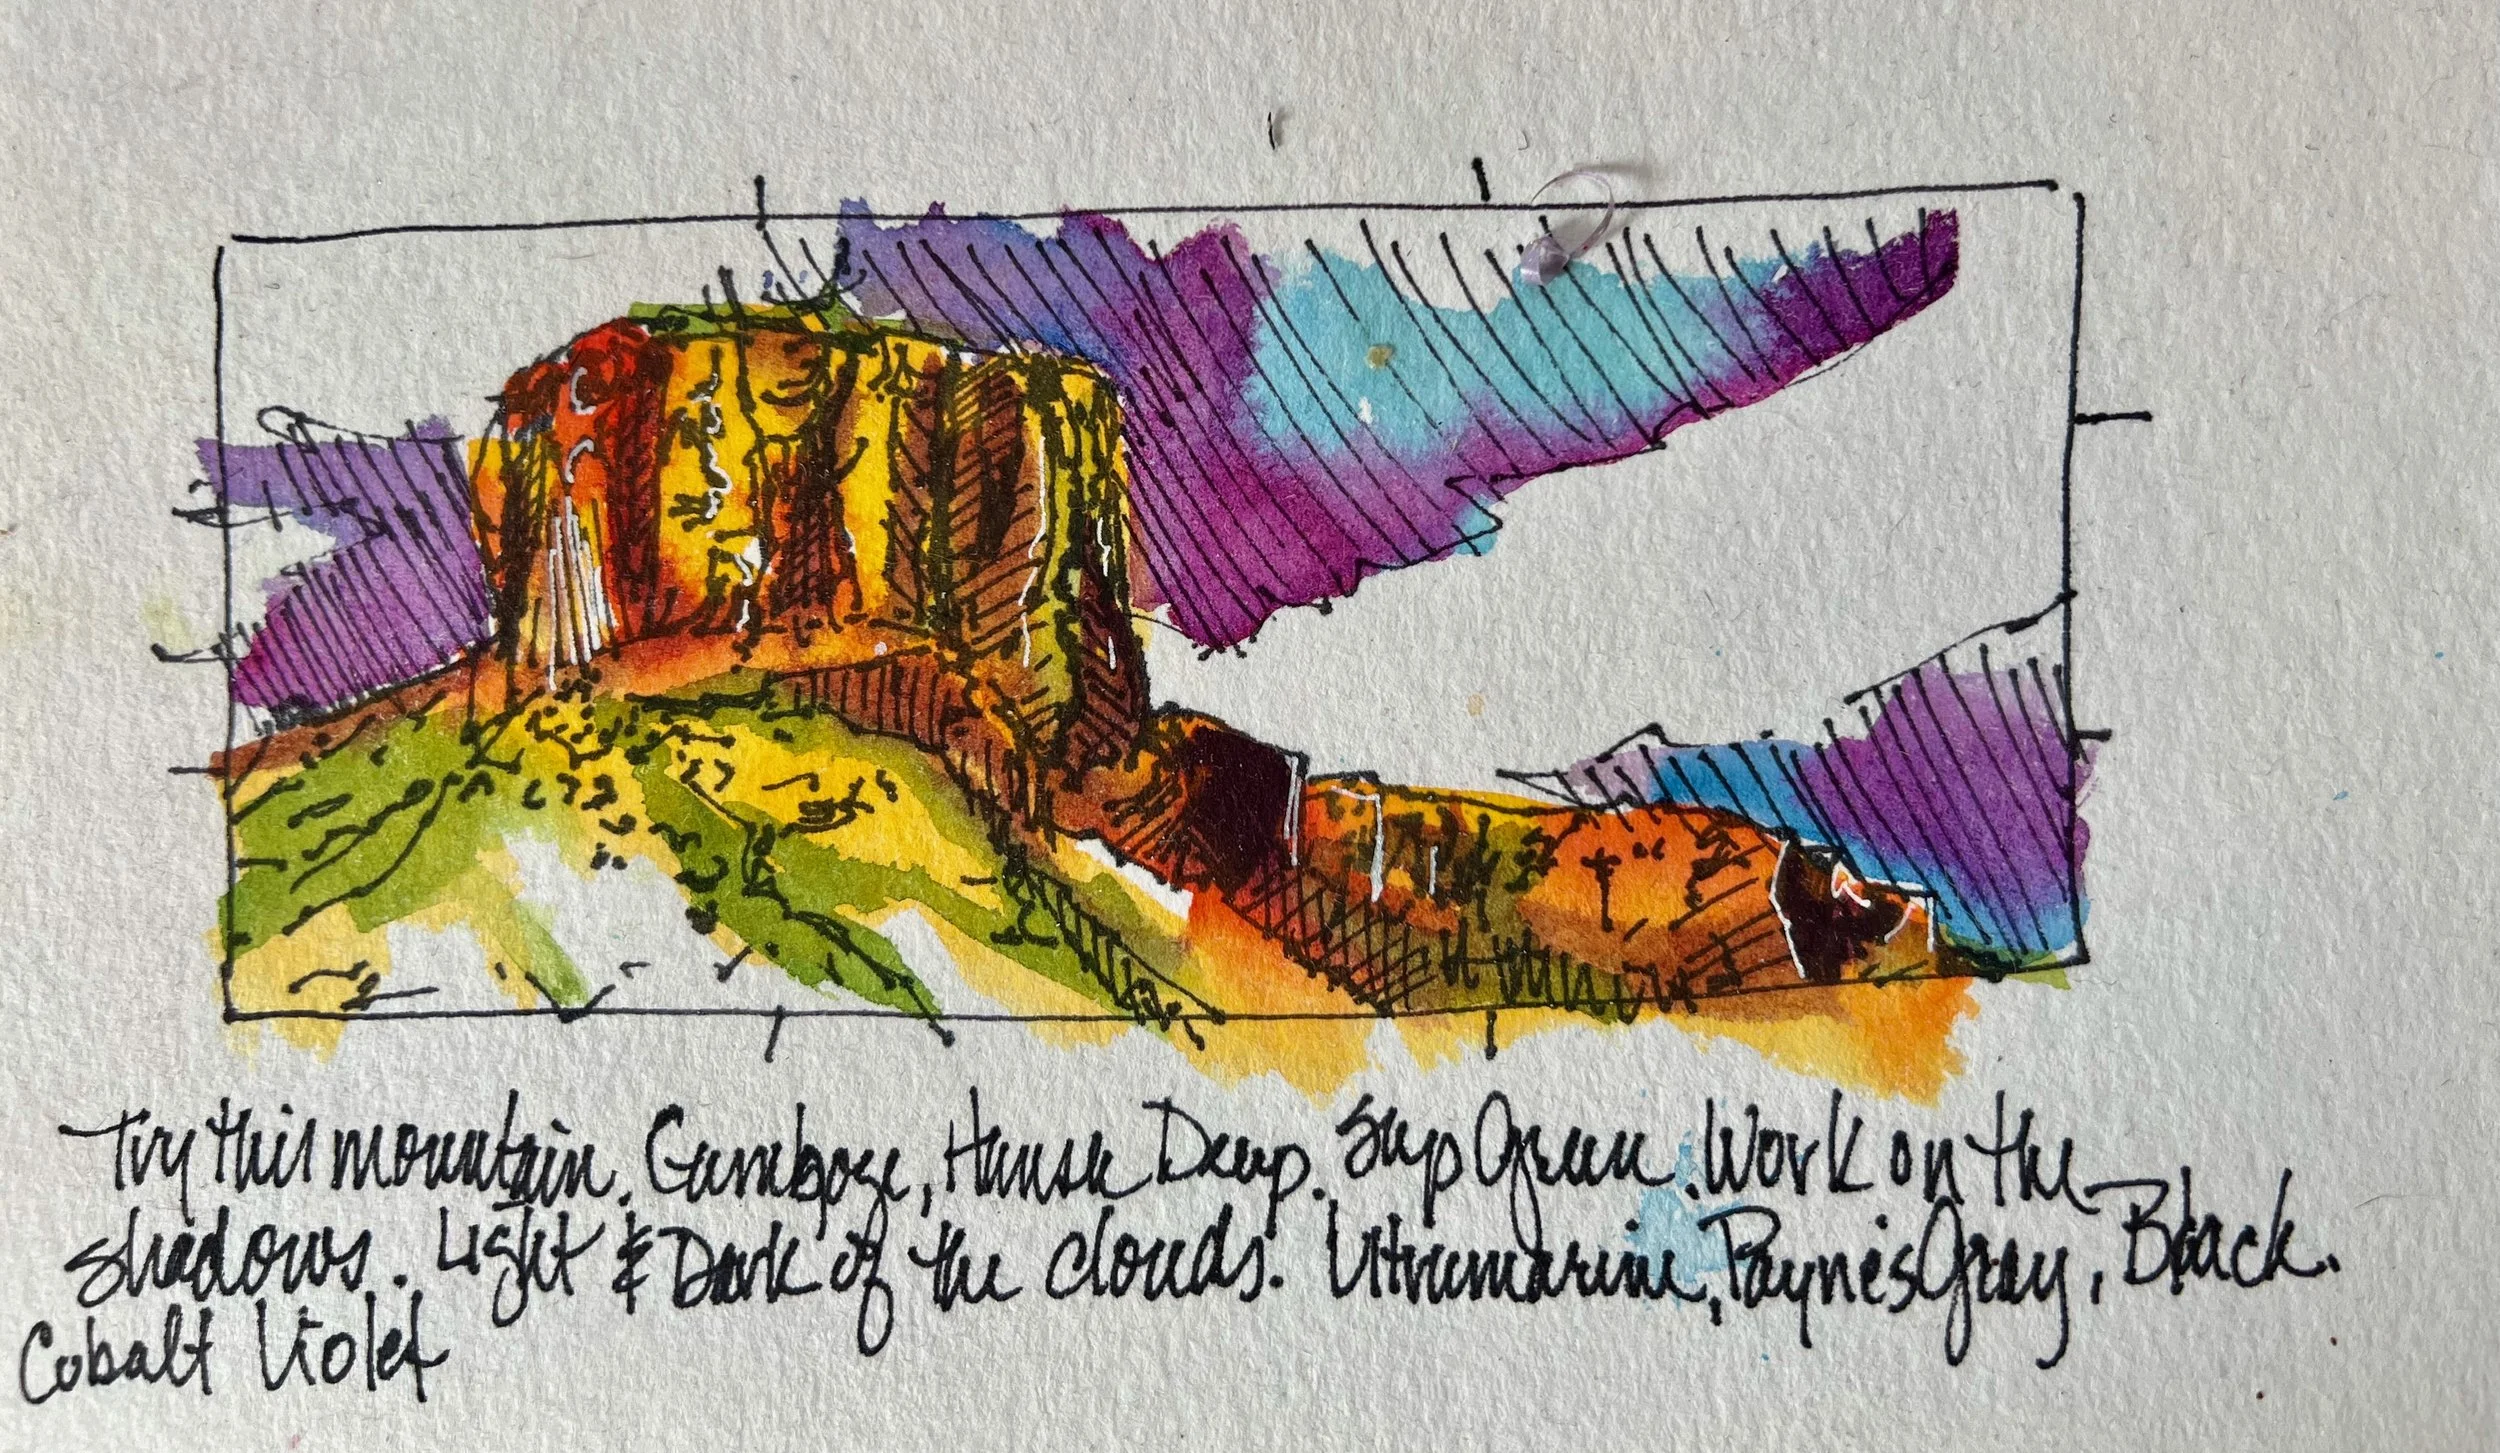 Try this mountain. Gamboge, Hansa Deep. Sap Green. Work on the
shadows. Light & Dark of the clouds. Ultramarine, Payne's Gray, Black.
Cobalt Violet